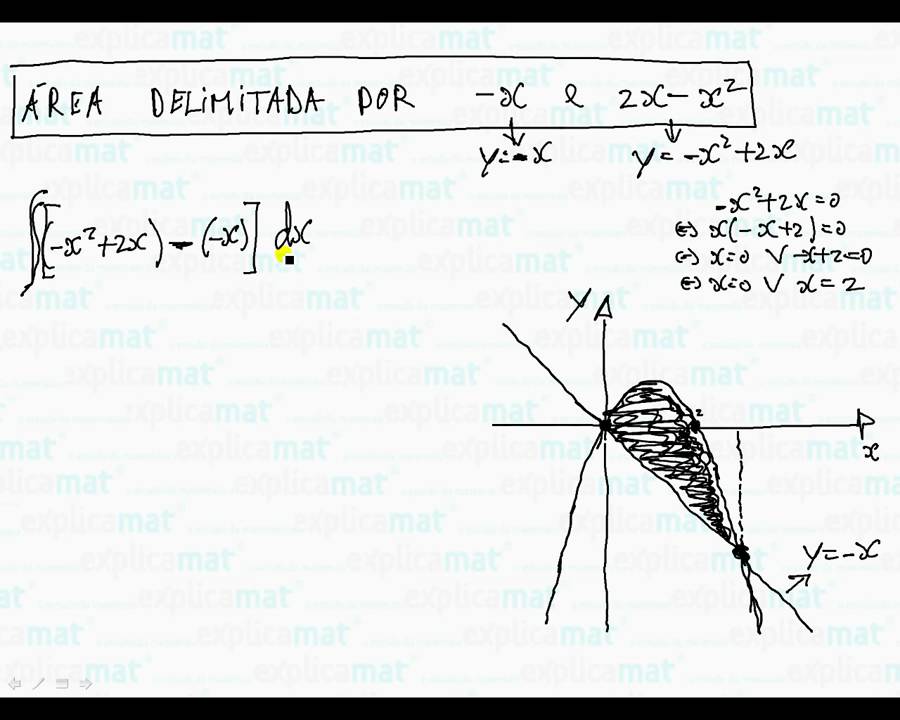 ÁREA DELIMITADA POR -x & 2x-x²
y=-x y=-x²+2x
∫[(-x²+2x)-(-x)] dx
-x²+2x=0
⇔ x(-x+2)=0
⇔ x=0 ∨ -x+2=0
⇔ x=0 ∨ x=2
y
2
x
y=-x
explicamat